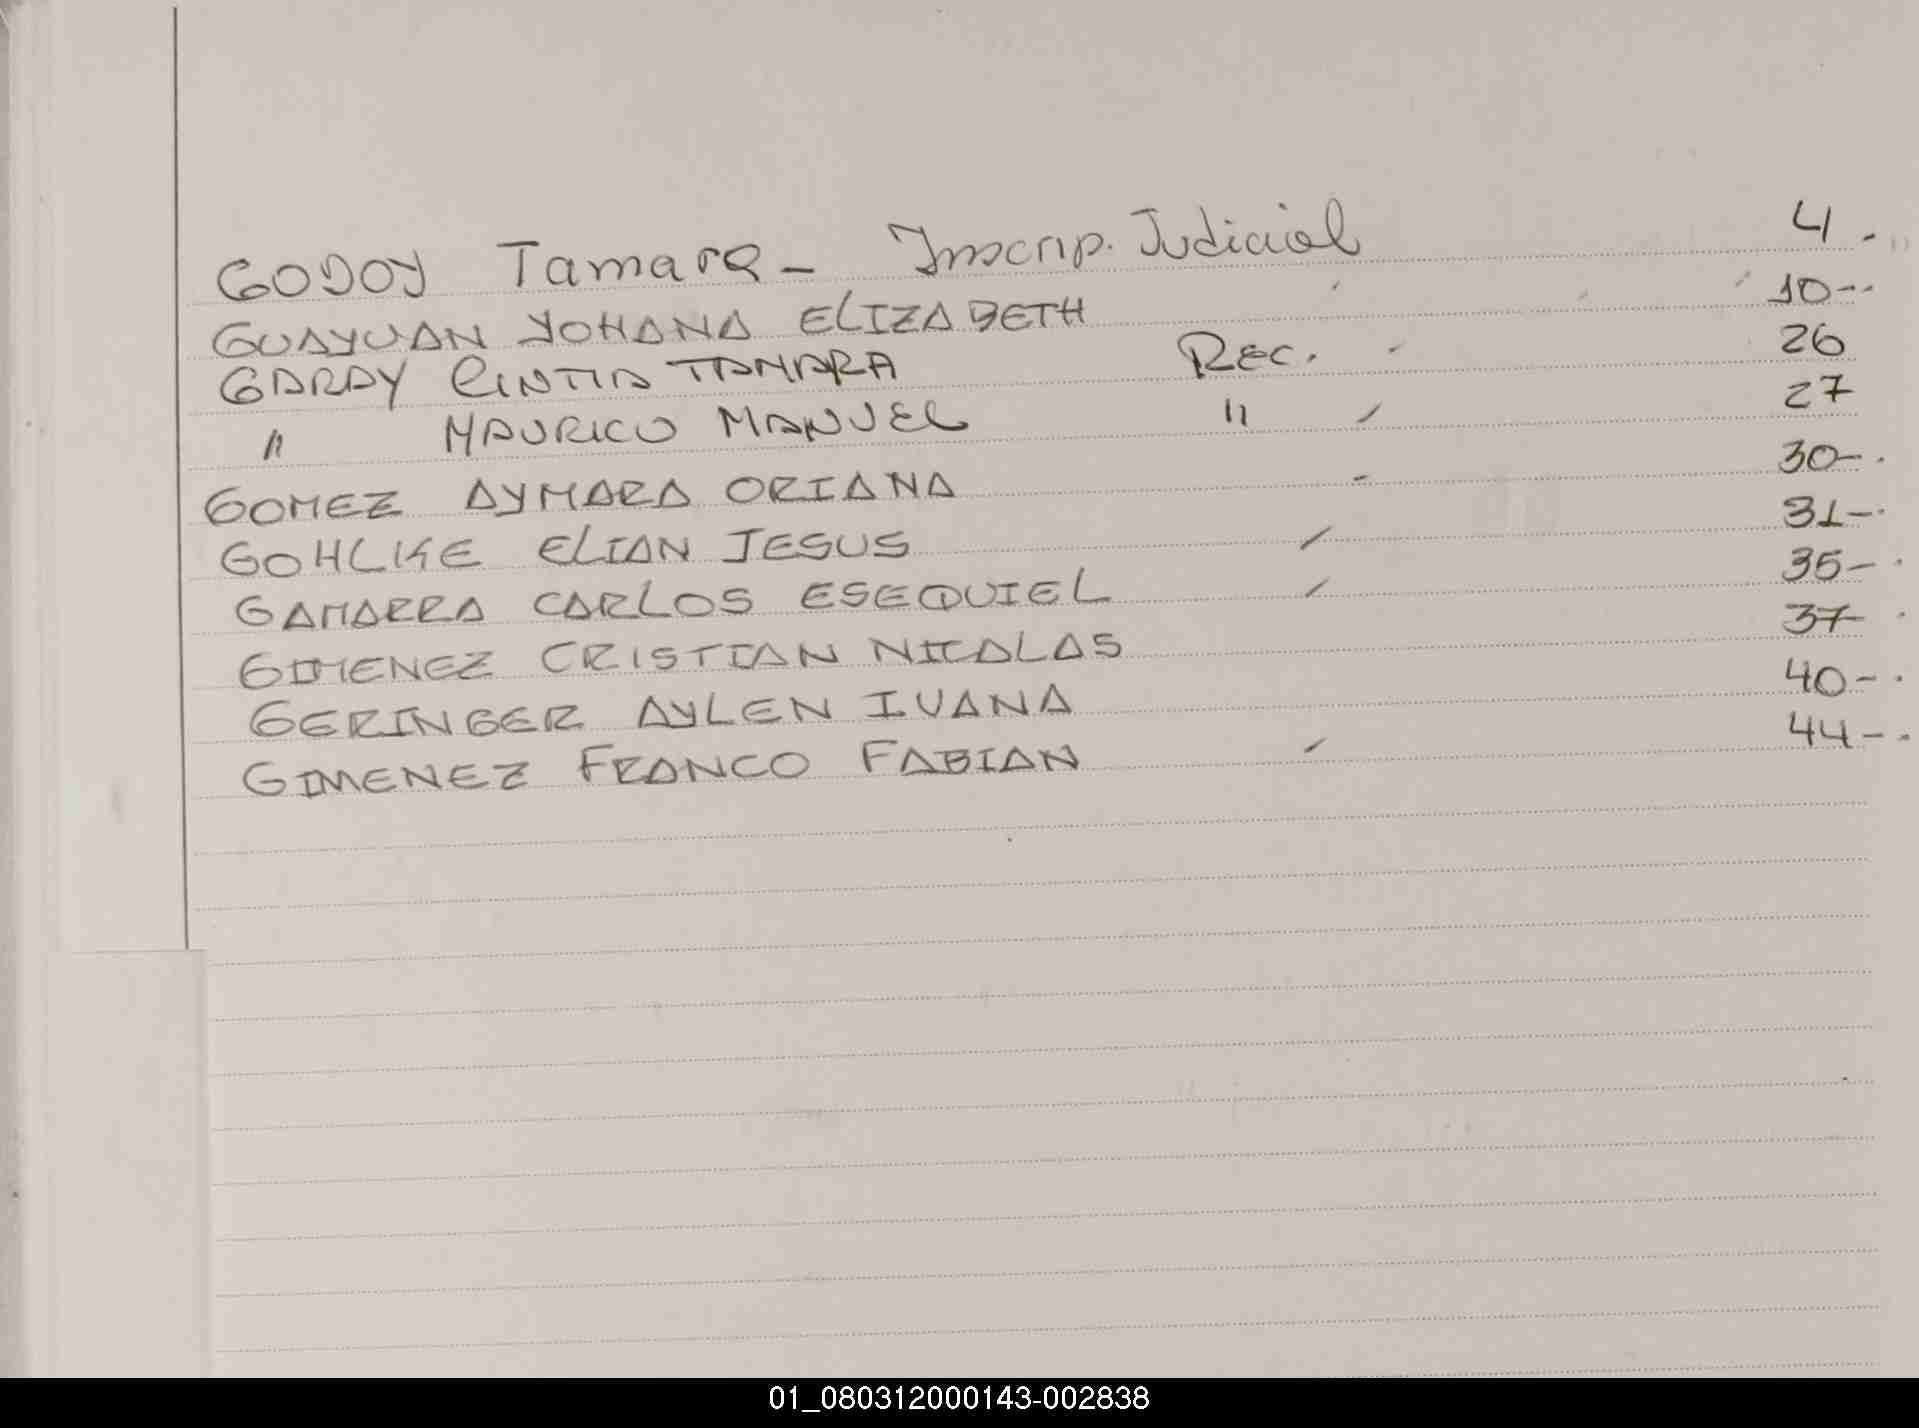 GODOY Tamara - Inscrip. Judicial 4.
GUAYUAN YOHANA ELIZABETH 10--
GARAY CINTIA TAMARA REC. 26
" MAURICO MANUEL " 27
GOMEZ AYMARA ORIANA 30-.
GOHLKE ELIAN JESUS 31-.
GAMARRA CARLOS ESEQUIEL 35-.
GIMENEZ CRISTIAN NICOLAS 37-.
GERINGER AYLEN IVANA 40-.
GIMENEZ FRANCO FABIAN 44-.
01_080312000143-002838